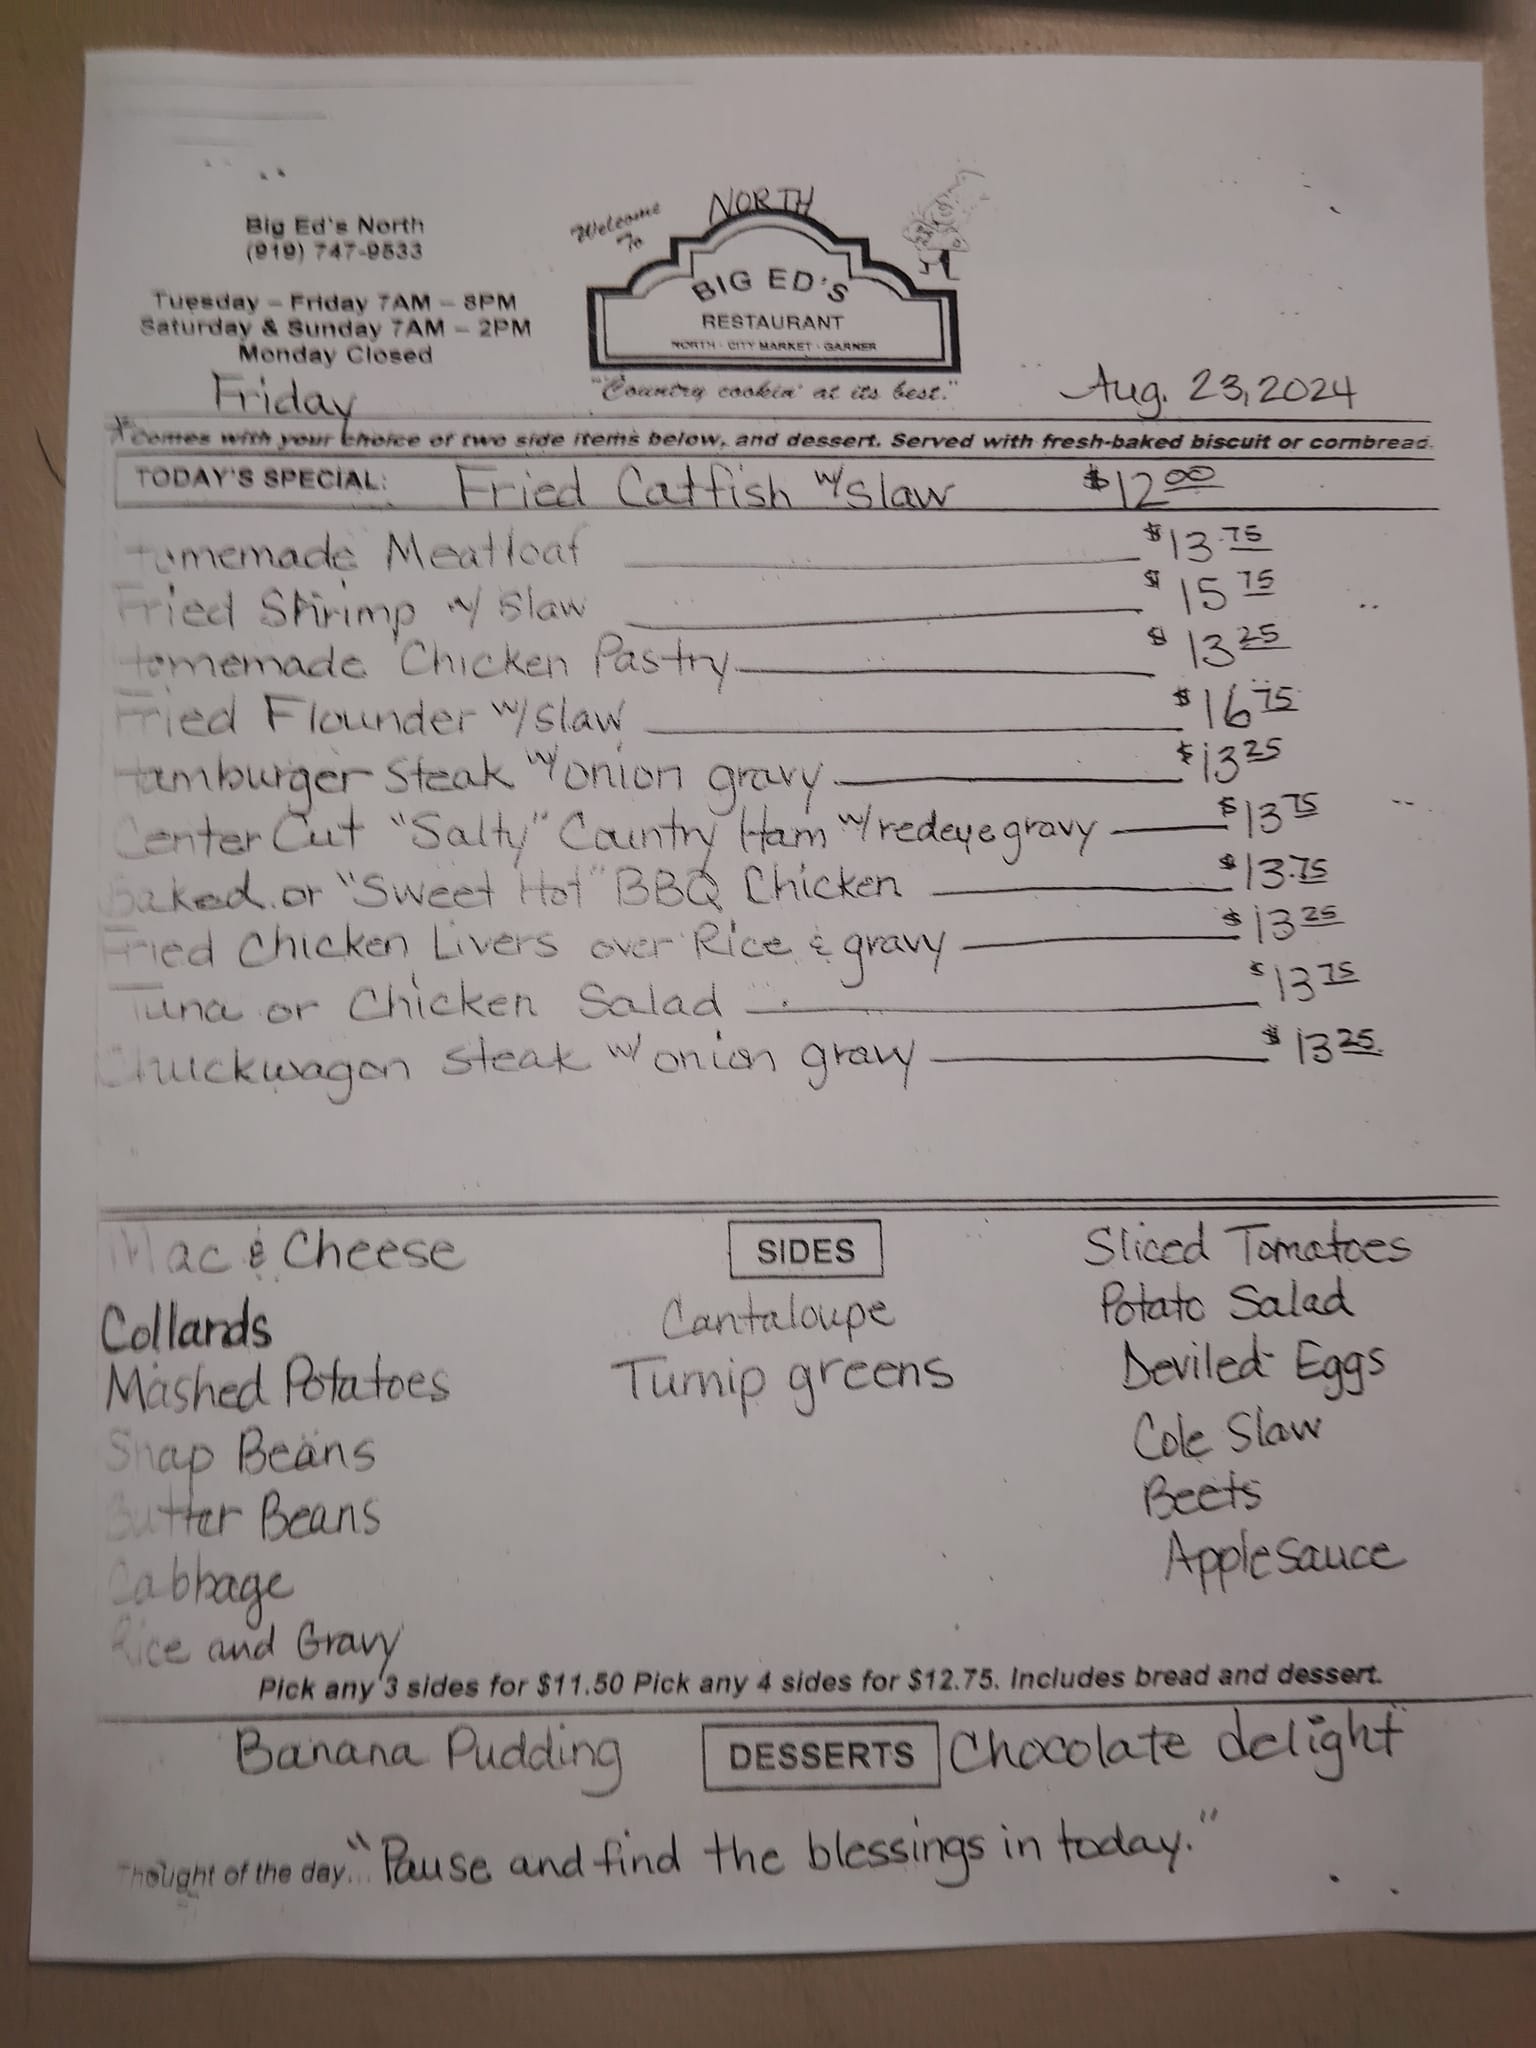 Big Ed's North
(919) 747-9533
Tuesday – Friday 7AM – 8PM
Saturday & Sunday 7AM – 2PM
Monday Closed
Welcome
To
NORTH
BIG ED'S
RESTAURANT
NORTH · CITY MARKET · GARNER
"Country cookin' at its best."
Friday
Aug. 23, 2024
*Comes with your choice of two side items below, and dessert. Served with fresh-baked biscuit or cornbread.
TODAY'S SPECIAL: Fried Catfish w/slaw $12.00
Homemade Meatloaf $13.75
Fried Shrimp w/ slaw $15.75
Homemade Chicken Pastry $13.25
Fried Flounder w/slaw $16.75
Hamburger Steak w/onion gravy $13.25
Center Cut "Salty" Country Ham w/redeye gravy $13.75
Baked or "Sweet Hot" BBQ Chicken $13.75
Fried Chicken Livers over Rice & gravy $13.25
Tuna or Chicken Salad $13.75
Chuckwagon steak w/onion gravy $13.25
SIDES
Mac & Cheese
Collards
Mashed Potatoes
Snap Beans
Butter Beans
Cabbage
Rice and Gravy
Cantaloupe
Turnip greens
Sliced Tomatoes
Potato Salad
Deviled Eggs
Cole Slaw
Beets
Applesauce
Pick any 3 sides for $11.50 Pick any 4 sides for $12.75. Includes bread and dessert.
Banana Pudding DESSERTS Chocolate delight
Thought of the day... "Pause and find the blessings in today."